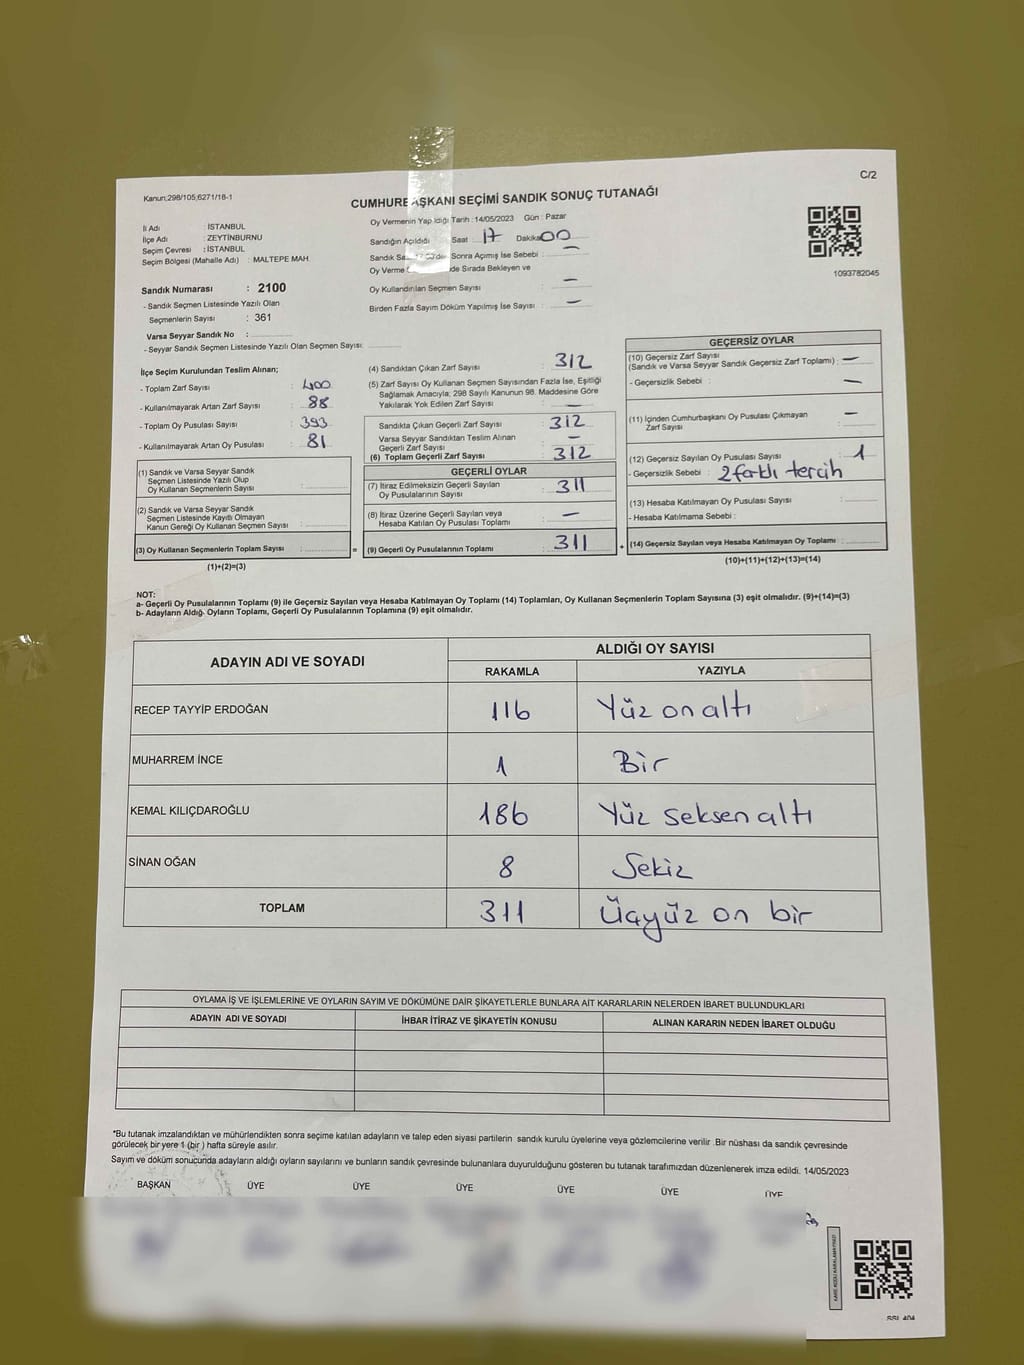 C/2
Kanun;298/105;6271/18-1
CUMHURBAŞKANI SEÇİMİ SANDIK SONUÇ TUTANAĞI
İl Adı : İSTANBUL
İlçe Adı : ZEYTİNBURNU
Seçim Çevresi : İSTANBUL
Seçim Bölgesi (Mahalle Adı) : MALTEPE MAH
Oy Vermenin Yapıldığı Tarih :14/05/2023 Gün : Pazar
Sandığın Açıldığı Saat 17 Dakika 00
Sonra Açımış İse Sebebi : —
Oy Verme de Sırada Bekleyen ve
Oy Kullandırılan Seçmen Sayısı : —
Birden Fazla Sayım Döküm Yapılmış İse Sayısı : —
1093782045
Sandık Numarası : 2100
- Sandık Seçmen Listesinde Yazılı Olan
Seçmenlerin Sayısı : 361
Varsa Seyyar Sandık No :
- Seyyar Sandık Seçmen Listesinde Yazılı Olan Seçmen Sayısı:
İlçe Seçim Kurulundan Teslim Alınan;
- Toplam Zarf Sayısı : 400
- Kullanılmayarak Artan Zarf Sayısı : 88
- Toplam Oy Pusulası Sayısı : 393
- Kullanılmayarak Artan Oy Pusulası : 81
(1) Sandık ve Varsa Seyyar Sandık
Seçmen Listesinde Yazılı Olup
Oy Kullanan Seçmenlerin Sayısı :
(2) Sandık ve Varsa Seyyar Sandık
Seçmen Listesinde Kayıtlı Olmayan
Kanun Gereği Oy Kullanan Seçmen Sayısı :
(3) Oy Kullanan Seçmenlerin Toplam Sayısı :
(1)+(2)=(3)
(4) Sandıktan Çıkan Zarf Sayısı : 312
(5) Zarf Sayısı Oy Kullanan Seçmen Sayısından Fazla İse, Eşitliği
Sağlamak Amacıyla; 298 Sayılı Kanunun 98. Maddesine Göre
Yakılarak Yok Edilen Zarf Sayısı : —
Sandıkta Çıkan Geçerli Zarf Sayısı : 312
Varsa Seyyar Sandıktan Teslim Alınan
Geçerli Zarf Sayısı : —
(6) Toplam Geçerli Zarf Sayısı : 312
GEÇERLİ OYLAR
(7) İtiraz Edilmeksizin Geçerli Sayılan
Oy Pusulalarının Sayısı : 311
(8) İtiraz Üzerine Geçerli Sayılan veya
Hesaba Katılan Oy Pusulası Toplamı : —
= (9) Geçerli Oy Pusulalarının Toplamı : 311
GEÇERSİZ OYLAR
(10) Geçersiz Zarf Sayısı
(Sandık ve Varsa Seyyar Sandık Geçersiz Zarf Toplamı) : —
- Geçersizlik Sebebi : —
(11) İçinden Cumhurbaşkanı Oy Pusulası Çıkmayan
Zarf Sayısı : —
(12) Geçersiz Sayılan Oy Pusulası Sayısı : 1
- Geçersizlik Sebebi : 2 farklı tercih
(13) Hesaba Katılmayan Oy Pusulası Sayısı :
- Hesaba Katılmama Sebebi :
+ (14) Geçersiz Sayılan veya Hesaba Katılmayan Oy Toplamı :
(10)+(11)+(12)+(13)=(14)
NOT:
a- Geçerli Oy Pusulalarının Toplamı (9) ile Geçersiz Sayılan veya Hesaba Katılmayan Oy Toplamı (14) Toplamları, Oy Kullanan Seçmenlerin Toplam Sayısına (3) eşit olmalıdır. (9)+(14)=(3)
b- Adayların Aldığı Oyların Toplamı, Geçerli Oy Pusulalarının Toplamına (9) eşit olmalıdır.
ADAYIN ADI VE SOYADI ALDIĞI OY SAYISI
RAKAMLA YAZIYLA
RECEP TAYYİP ERDOĞAN 116 Yüz on altı
MUHARREM İNCE 1 Bir
KEMAL KILIÇDAROĞLU 186 Yüz seksen altı
SİNAN OĞAN 8 Sekiz
TOPLAM 311 Üçyüz on bir
OYLAMA İŞ VE İŞLEMLERİNE VE OYLARIN SAYIM VE DÖKÜMÜNE DAİR ŞİKAYETLERLE BUNLARA AİT KARARLARIN NELERDEN İBARET BULUNDUKLARI
ADAYIN ADI VE SOYADI İHBAR İTİRAZ VE ŞİKAYETİN KONUSU ALINAN KARARIN NEDEN İBARET OLDUĞU
*Bu tutanak imzalandıktan ve mühürlendikten sonra seçime katılan adayların ve talep eden siyasi partilerin sandık kurulu üyelerine veya gözlemcilerine verilir .Bir nüshası da sandık çevresinde
görülecek bir yere 1 (bir ) hafta süreyle asılır.
Sayım ve döküm sonucunda adayların aldığı oyların sayılarını ve bunların sandık çevresinde bulunanlara duyurulduğunu gösteren bu tutanak tarafımızdan düzenlenerek imza edildi. 14/05/2023
BAŞKAN ÜYE ÜYE ÜYE ÜYE ÜYE ÜYE